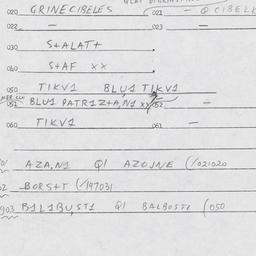 020 GRINECIBELES 021 - Q CIBELK
022 - 023 -
030 S+ALAT+
040 S+AF XX
050 TIKV1 BLU1 TIKV1
051 BLU1 PATR1Z+A,N1 XX 052 -
060 TIKV1 061 -
01 AZA,N1 Q1 AZOJNE (/021020
02 BORS+T (/197031
903 B1L1BU,ST1 Q1 BALBOSTE (050